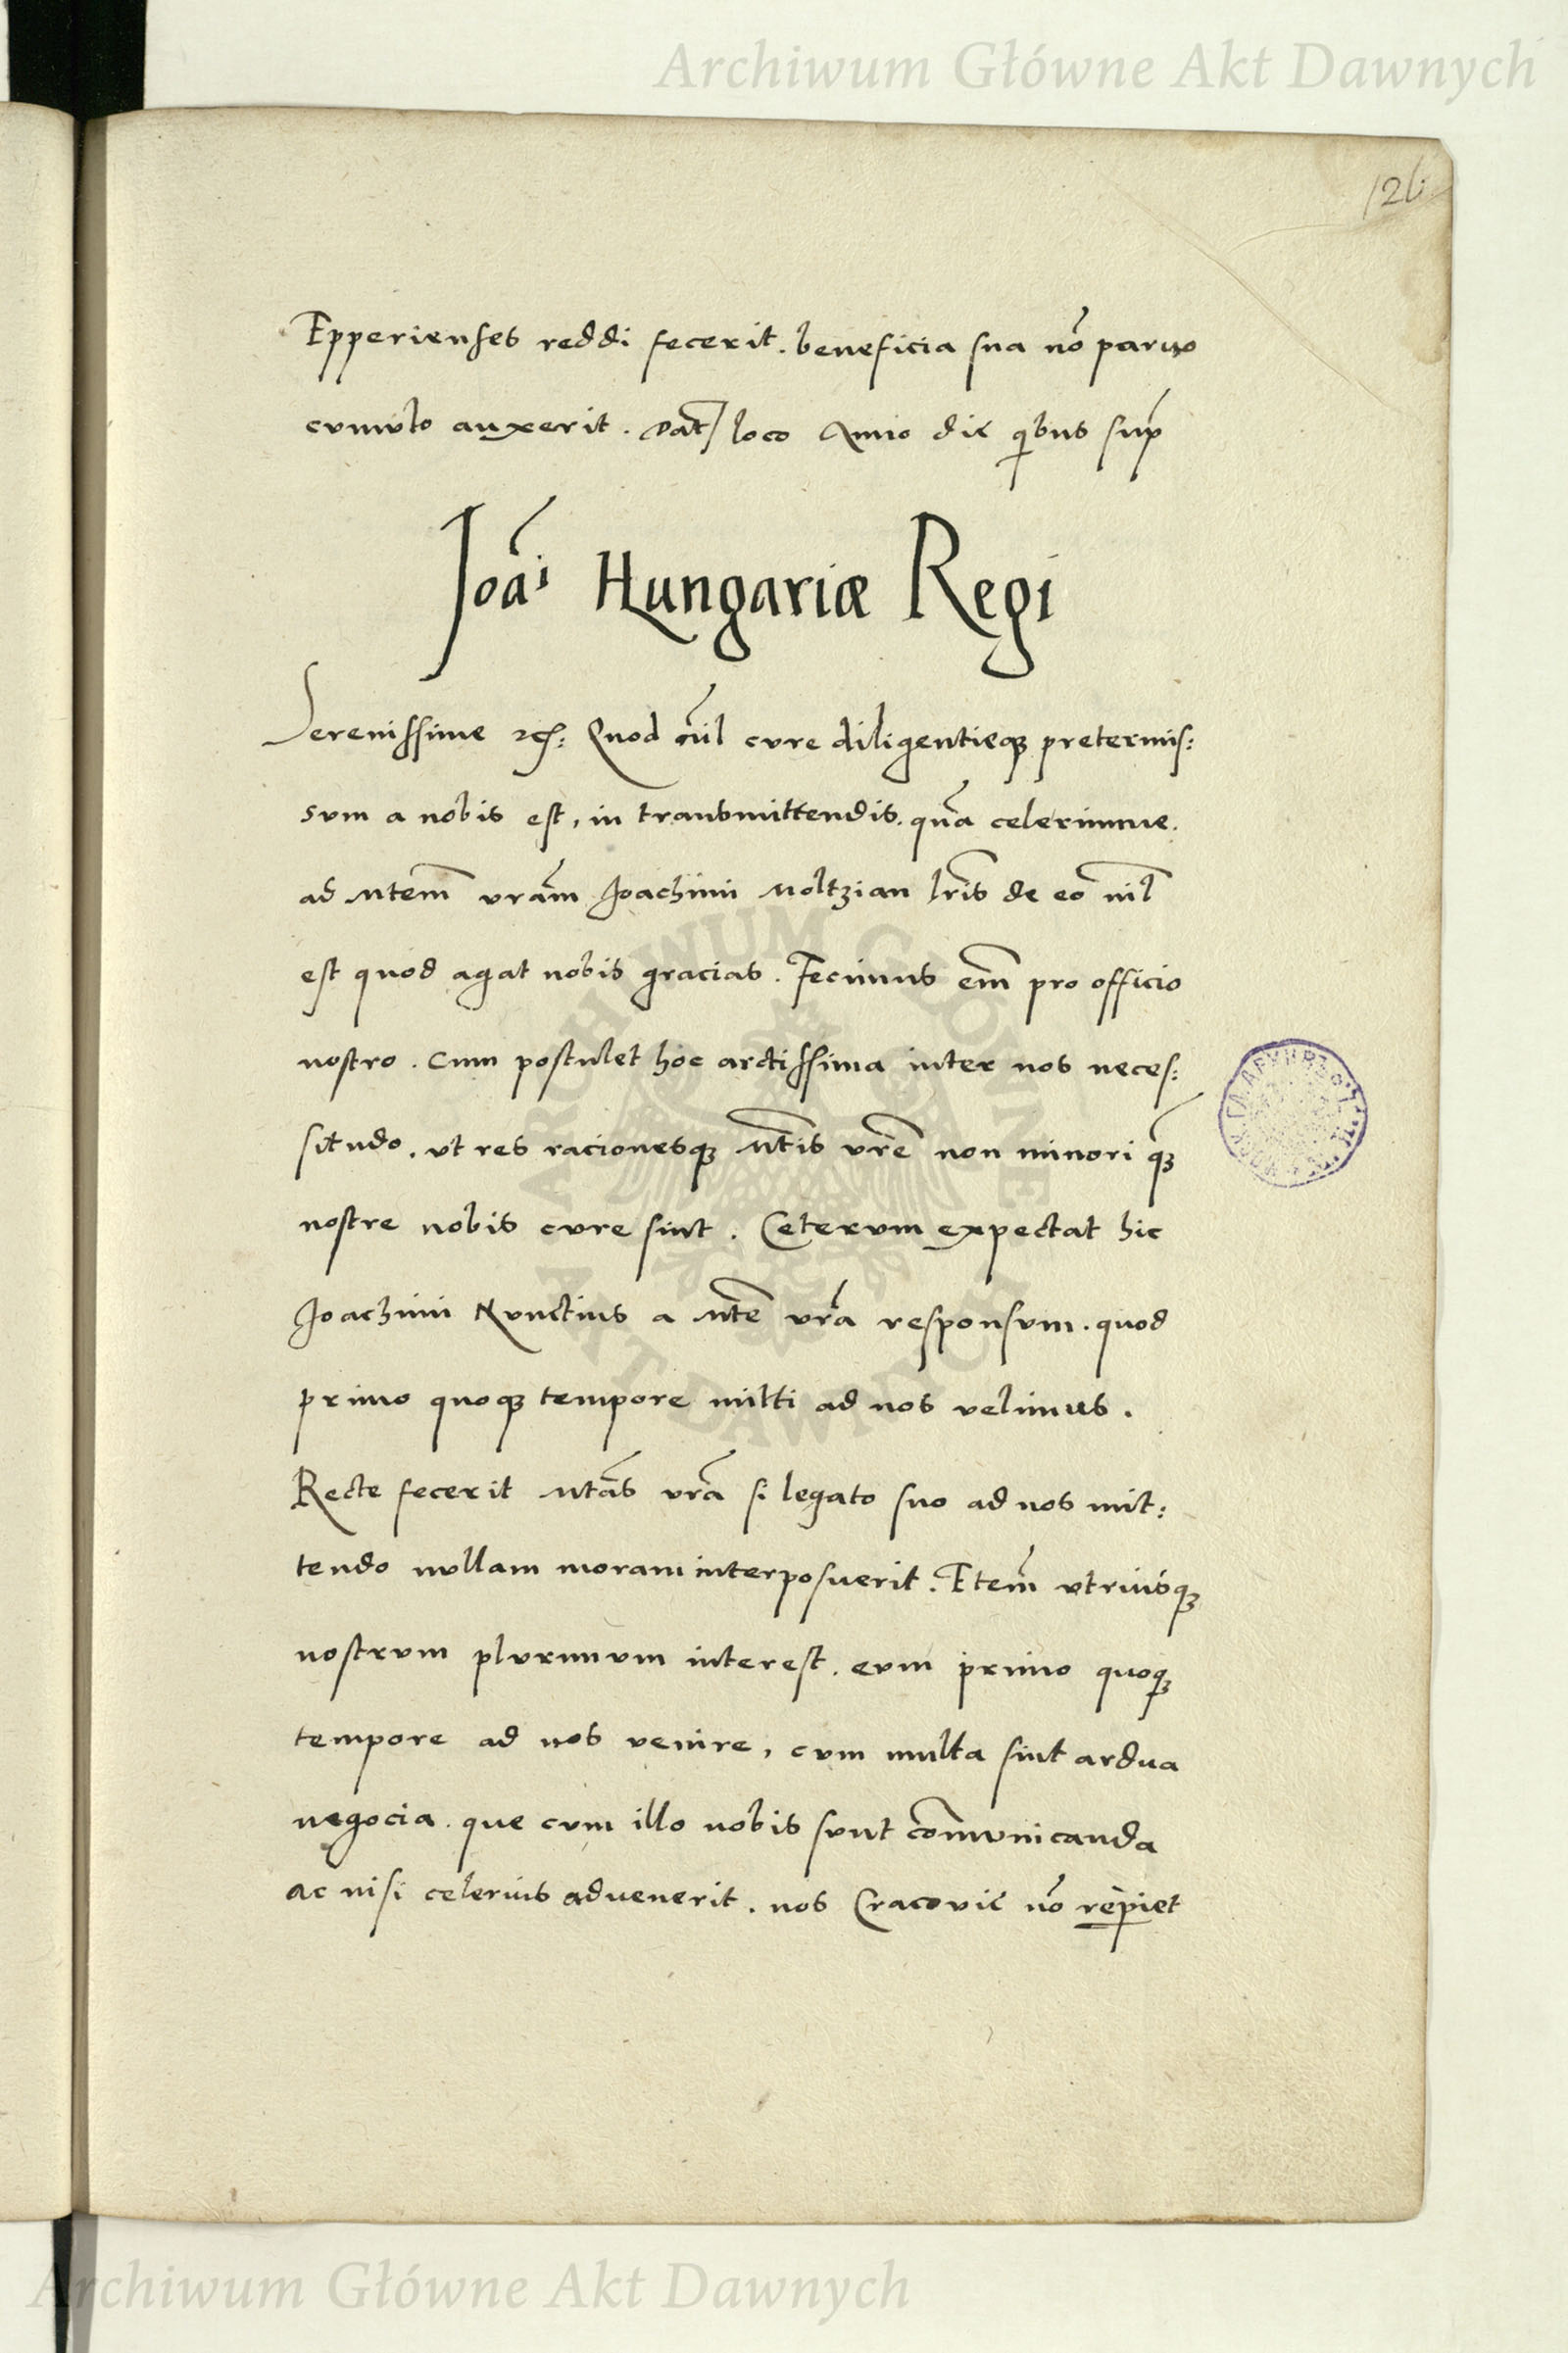 Archiwum Główne Akt Dawnych
126
Epperienses reddi fecerit. beneficia sua nō paruo
cumulo auxerit. Dat̄ loco Anno die qbus sup
Joāi Hungariæ Regi
Serenissime rc̄: Quod nil cure diligentieq3 pretermis:
sum a nobis est, in transmittendis. quā celerimme.
ad Mtem̄ vrām Joachimi Moltzian lrīs de eo nil
est quod agat nobis gracias. Fecimus em̄ pro officio
nostro. Cum postulet hoc arctissima inter nos neces:
situdo. ut res racionesq3 Mtis vrē non minori q̄3
nostre nobis cure sint. Ceterum expectat hic
Joachimi Nunctius a Mte vrā responsum. quod
primo quoq3 tempore mitti ad nos velimus.
Recte fecerit Mtās vrā si legato suo ad nos mit:
tendo nullam moram interposuerit. Etem̄ utriusq3
nostrum plurimum interest. eum primo quoq3
tempore ad nos venire, cum multa sint ardua
negocia. que cum illo nobis sunt com̄unicanda
ac nisi celerius advenerit. nos Cracovie nō rep̄iet
ARCHIWUM GŁÓWNE
AKT DAWNYCH
Archiwum Główne Akt Dawnych